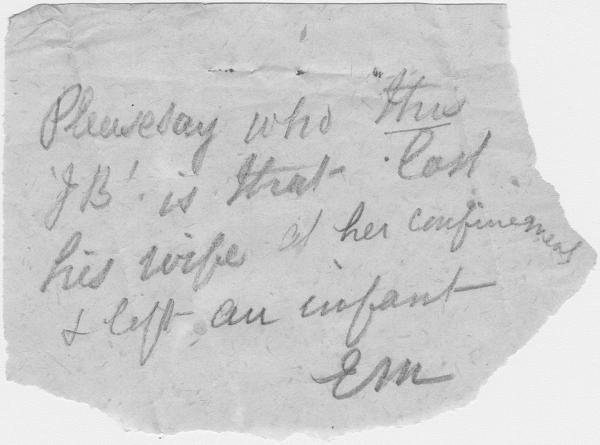 Please say who this
'JB' is that lost
his wife at her confinement
& left an infant
EM